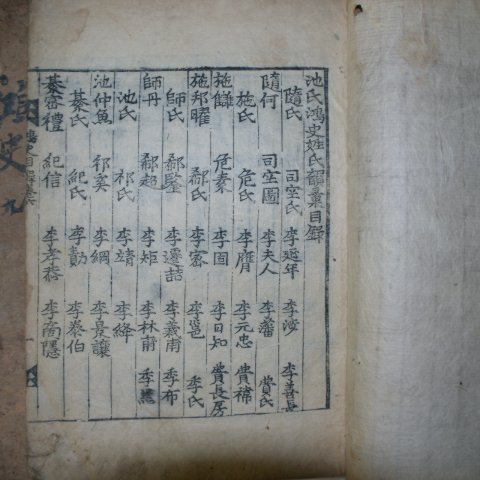 池氏鴻史姓氏韻彙目録
隨氏 司空氏 李延年 李汝 李善長
隨何 司空圖 李夫人 李藩 費氏
施氏 危氏 李膺 李元忠 費禕
施讎 危素 李固 李日知 費長房
施邦曜 郗氏 李密 李邕 季氏
師氏 郗鑒 李遵喆 李義甫 季布
師丹 郗超 李矩 李林甫
池氏 祁氏 李靖 李絳
池仲魚 祁奚 李綱 李景讓
綦氏 紀氏 李勣 李蔡伯
綦崇禮 紀信 李孝恭 李商隱
鴻史
九